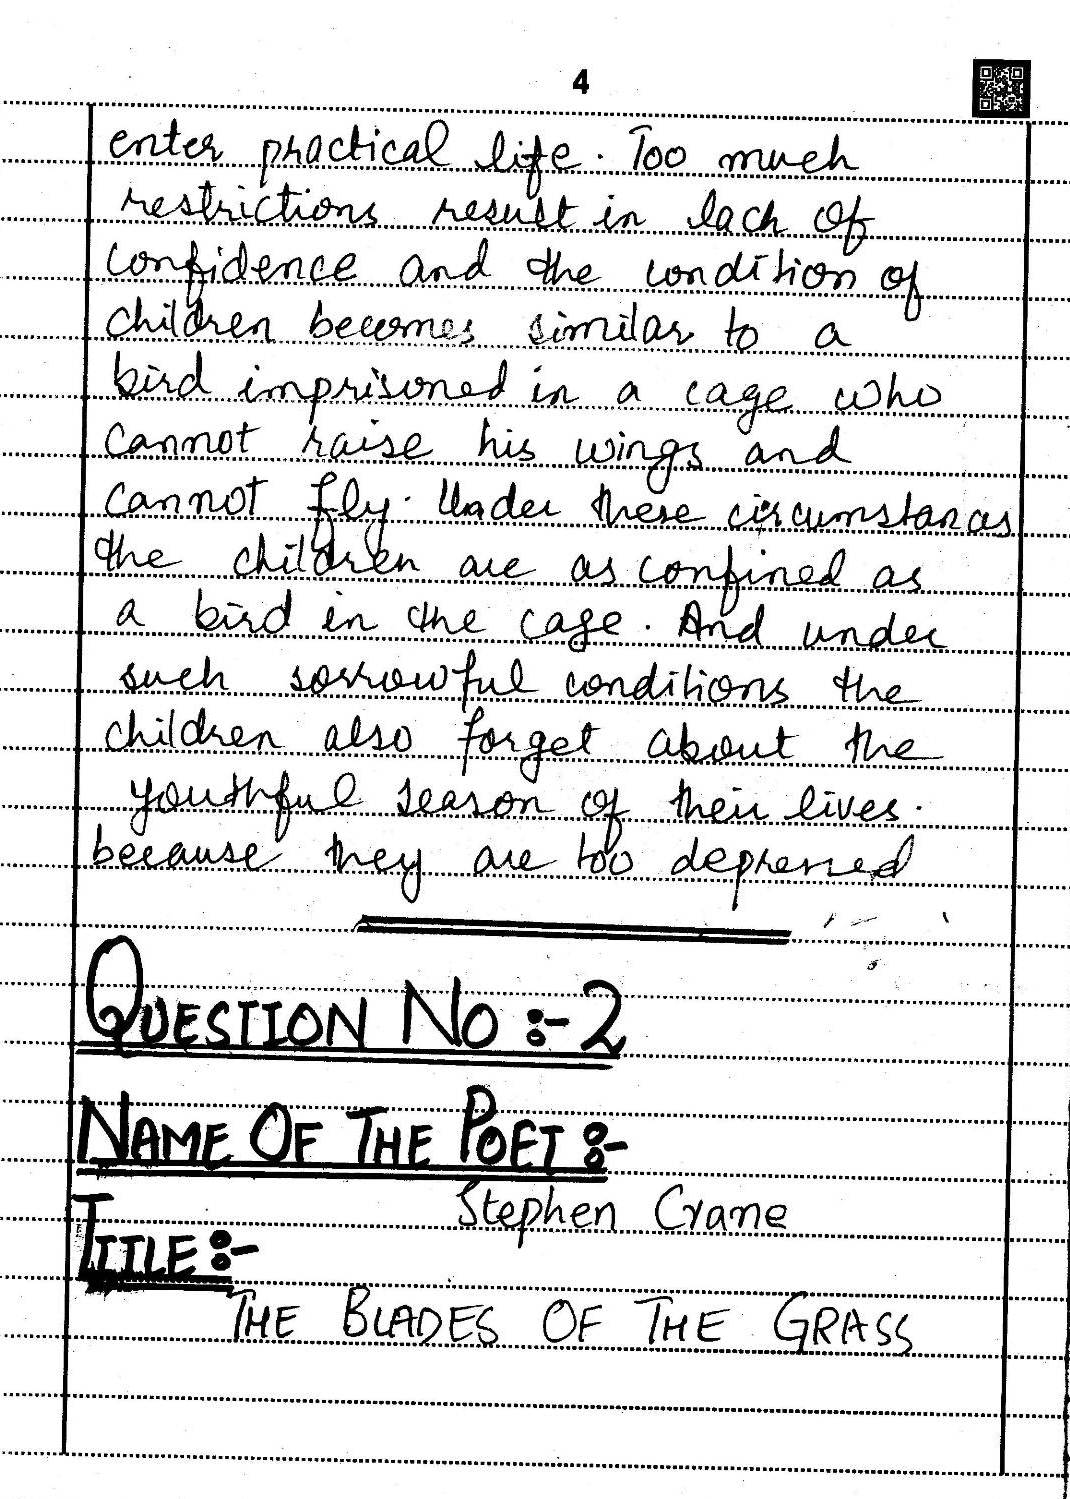 4
enter practical life. Too much
restrictions result in lack of
confidence and the condition of
children becomes similar to a
bird imprisoned in a cage who
cannot raise his wings and
cannot fly. Under these circumstances
the children are as confined as
a bird in the cage. And under
such sorrowful conditions the
children also forget about the
youthful season of their lives.
because they are too depressed
QUESTION NO :- 2
NAME OF THE POET :-
Stephen Crane
TITLE :-
THE BLADES OF THE GRASS